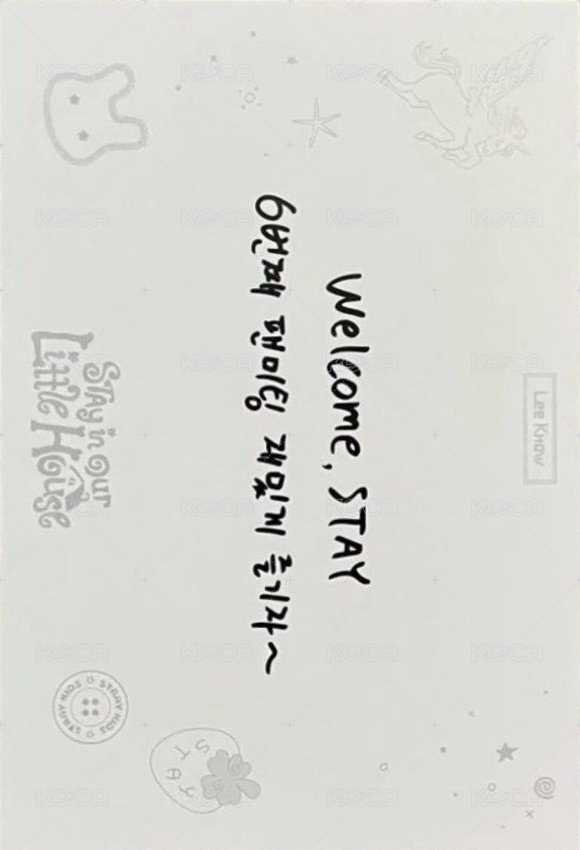 Lee Know
Welcome, STAY
6번째 팬미팅 재밌게 즐기자~
STAY in our
Little House
STRAY KIDS ☆ STRAY KIDS ☆
STAY
KOCA